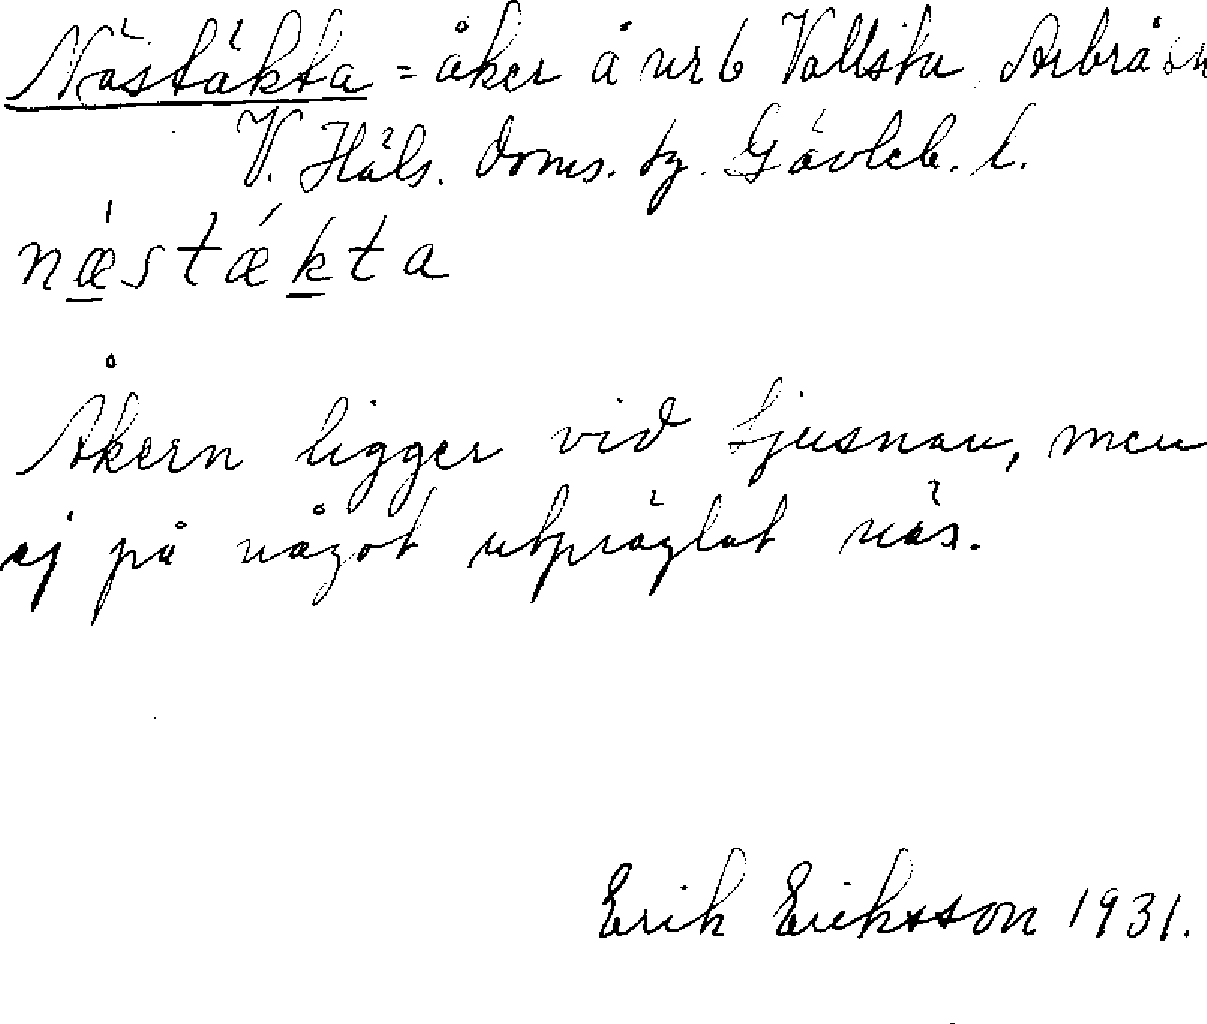 Nästäkta = åker å nr 6 Vallsta Arbrå sn
V. Häls. doms. tg. Gävleb. l.
næstækta
Åkern ligger vid Ljusnan, men
ej på något utpräglat näs.
Erik Eriksson 1931.